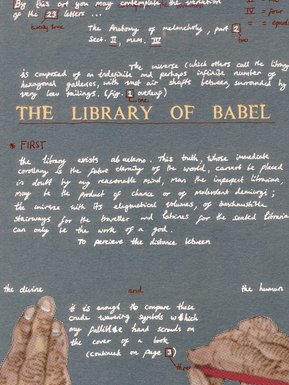 By this art you may contemplate the variation
of the 23 letters ...
The Anatomy of melancholy, part 2
Sect. II, mem. IV
II =
IV = four
The universe (which others call the library)
is composed of an indefinite and perhaps infinite number of
hexagonal galleries, with vast air shafts between, surrounded by
very low railings. (Fig. 1 overleaf)
one
THE LIBRARY OF BABEL
* FIRST
the library exists ab aeterno. This truth, whose immediate
corollary is the future eternity of the world, cannot be placed
in doubt by any reasonable mind, Man the imperfect librarian,
may be the product of chance or of malevolent demiurgi;
the universe with its elegant volumes, of
stairways for the traveller and latrines for the seated librarian
can only be the work of a god.
To perceive the distance between
the divine and the human
it is enough to compare these
crude wavering symbols which
my fallible hand scrawls on
the cover of a book
(continued on page 3)
three